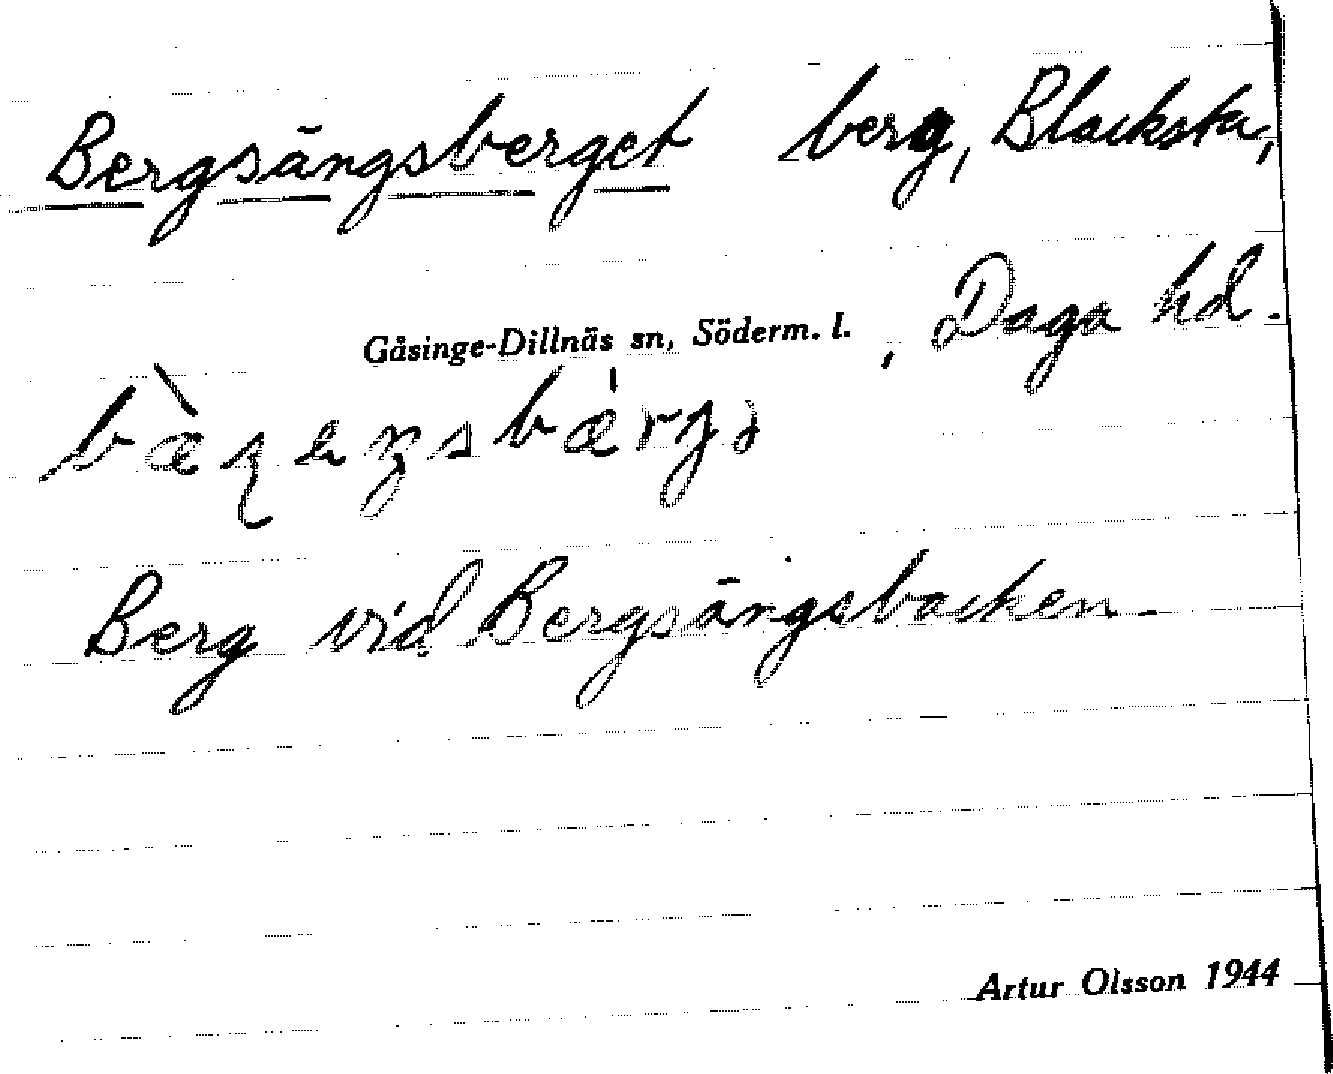 Bergsängsberget berg, Blacksta,
Gåsinge-Dillnäs sn, Söderm. l. , Daga hd.
Berg vid Bergsängsbacken.
Artur Olsson 1944